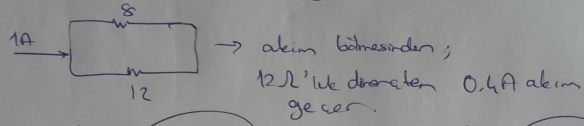 8
1A → akım bölmesinden;
12Ω'luk dirençten 0.4A akım
12
geçer.